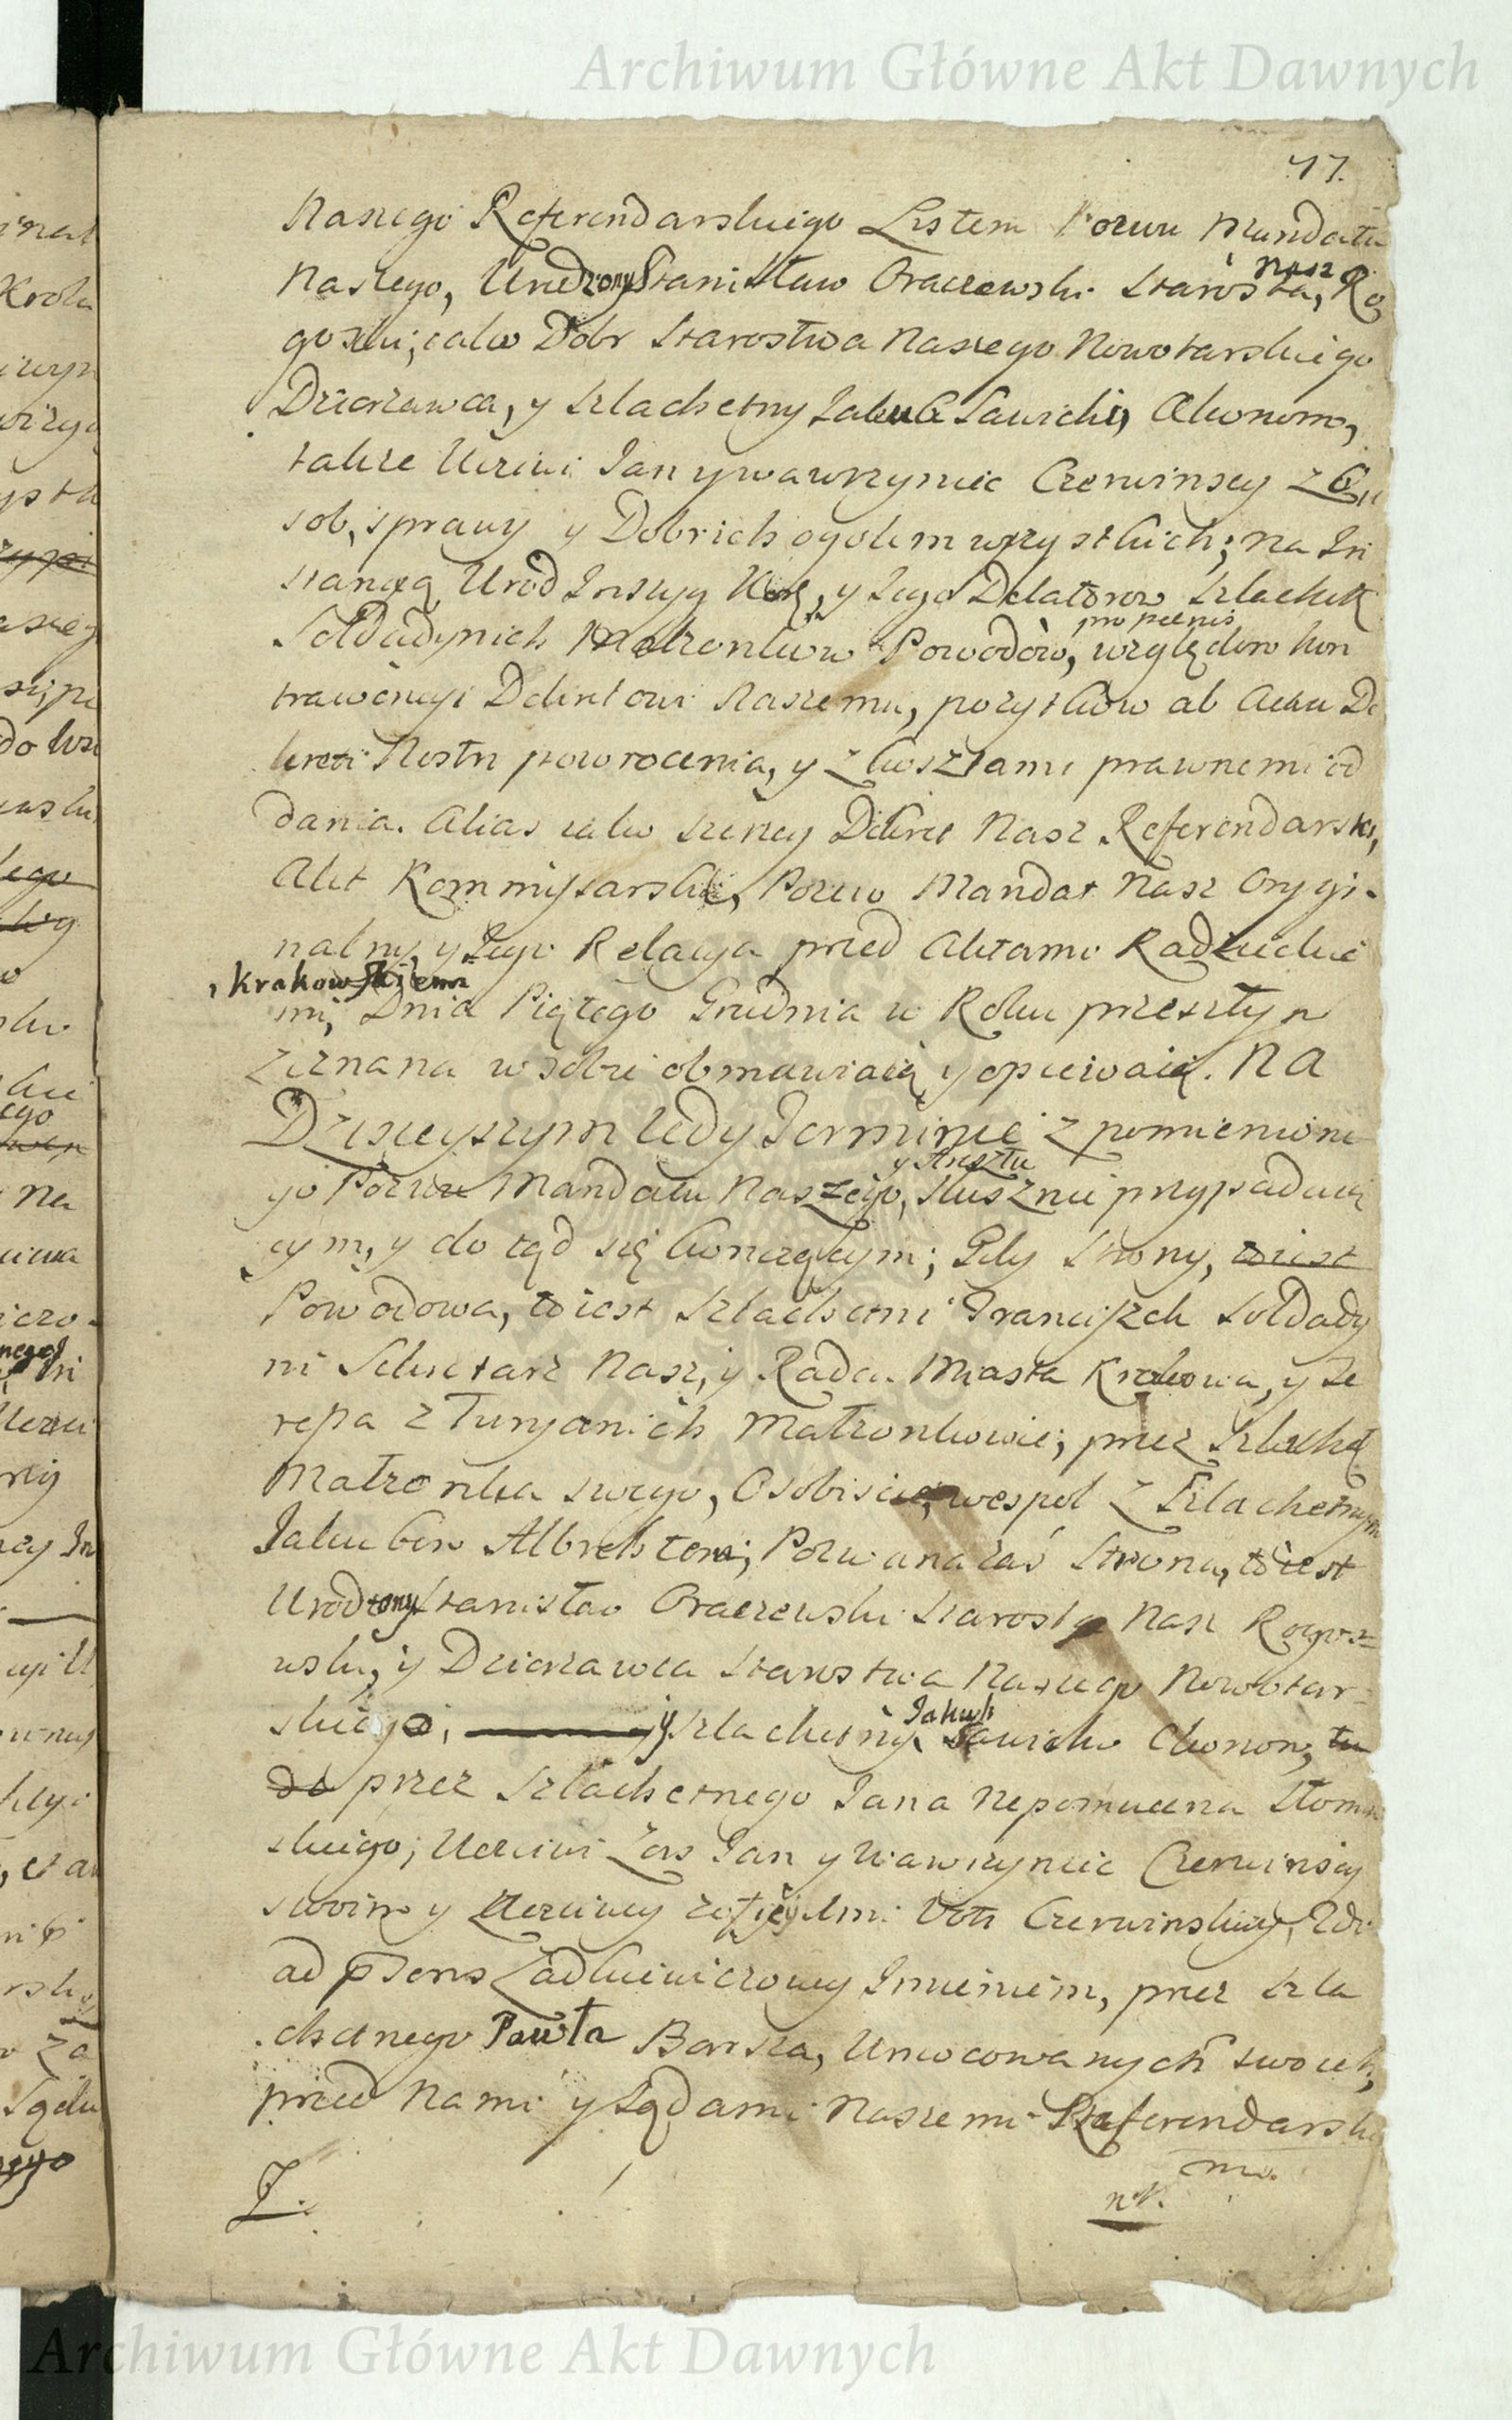 Archiwum Główne Akt Dawnych
77.
Naszego Referendarskiego Listem Pozwu Mandatu
nasz
Naszego, Urodzony Stanisław Oraczewski Starosta, Ro
goski, iako Dobr Starostwa Naszego Nowotarskiego
Dzierzawca, y Szlachetny Jakub Sawicki, Ekonom,
takze Uczciwi Jan y Wawrzyniec Czerwinscy z O
sob, sprawy y Dobr ich ogolem wszystkich; na In
stancyą Urod Instyg Kor, y Jego Delatorow Szlachet
pro poenis
Soldadynich Małzonkow Powodow, względem kon
trawencyi Dekretowi Naszemu, pozytkow ab Actu De
kreti Nostri powrocenia, y z kosztami prawnemi od
dania. Alias iako szerzey Dekret Nasz Referendarski,
Akt Kommissarski, Pozew Mandat Nasz Orygi-
nalny, y Jego Relacya przed Aktami Radzieckie
Krakowskiemi
mi, Dnia Piątego Grudnia w Roku przeszłym
zeznana w sobie obmawiaią y opiewaią. Na
Dzisieyszym tedy Terminie z pomienione
y Aresztu
go Pozwu Mandatu Naszego, słusznie przypadaią
cym, y do tąd się kontynuującym; Gdy Strony, to iest
Powodowa, to iest Szlachetni Franciszek Soldady
ni Sekretarz Nasz, y Rada Miasta Krakowa, y Te
ressa z Turyanich Małzonkowie; przez Szlachet
Małzonka swego, Osobiscie, wespoł z Szlachetnym
Jakubem Albrehstem; Pozwana zaś Strona, to iest
Urodzony Stanisław Oraczewski Starosta Nasz Rogoz=
wski, y Dzierzawca Starostwa Naszego Nowotar=
Jakub
skiego, y Szlachetny Sawicki Ekonom, tu
do przez Szlachetnego Jana Nepomucena Słomin
skiego; Uczciwi Zas Jan y Wawrzyniec Czerwinscy
swoim y Uczciwey Voti Czerwinskiey,
ad psens Zadkiewiczowey Imieniem, przez Szla
chetnego Pawła Barsza, Umocowanych swoich,
przed Nami y Sądami Naszemi Referendarskie
mi.
Archiwum Główne Akt Dawnych